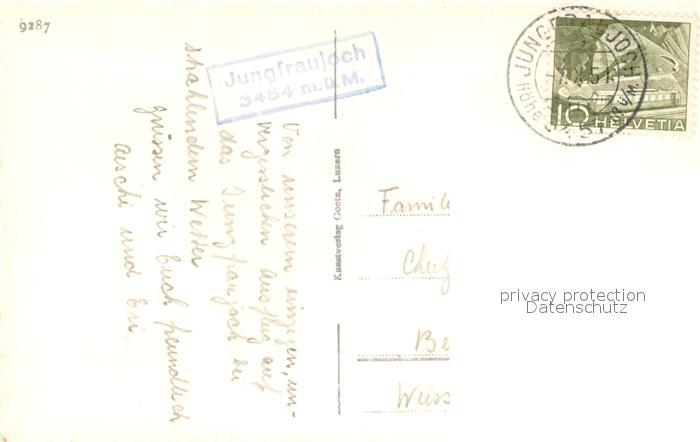 9287
Jungfraujoch
3454 m.ü.M.
JUNGFRAUJOCH
Höhe 3457
10 HELVETIA
Von unserem einzigen, un-
vergesslichen Ausflug auf
das Jungfraujoch bei
strahlendem Wetter
grüssen wir Euch freundlich
Aeschi und Eri
Kunstverlag Goetz, Luzern
Famil
Be
Weiss
privacy protection
Datenschutz